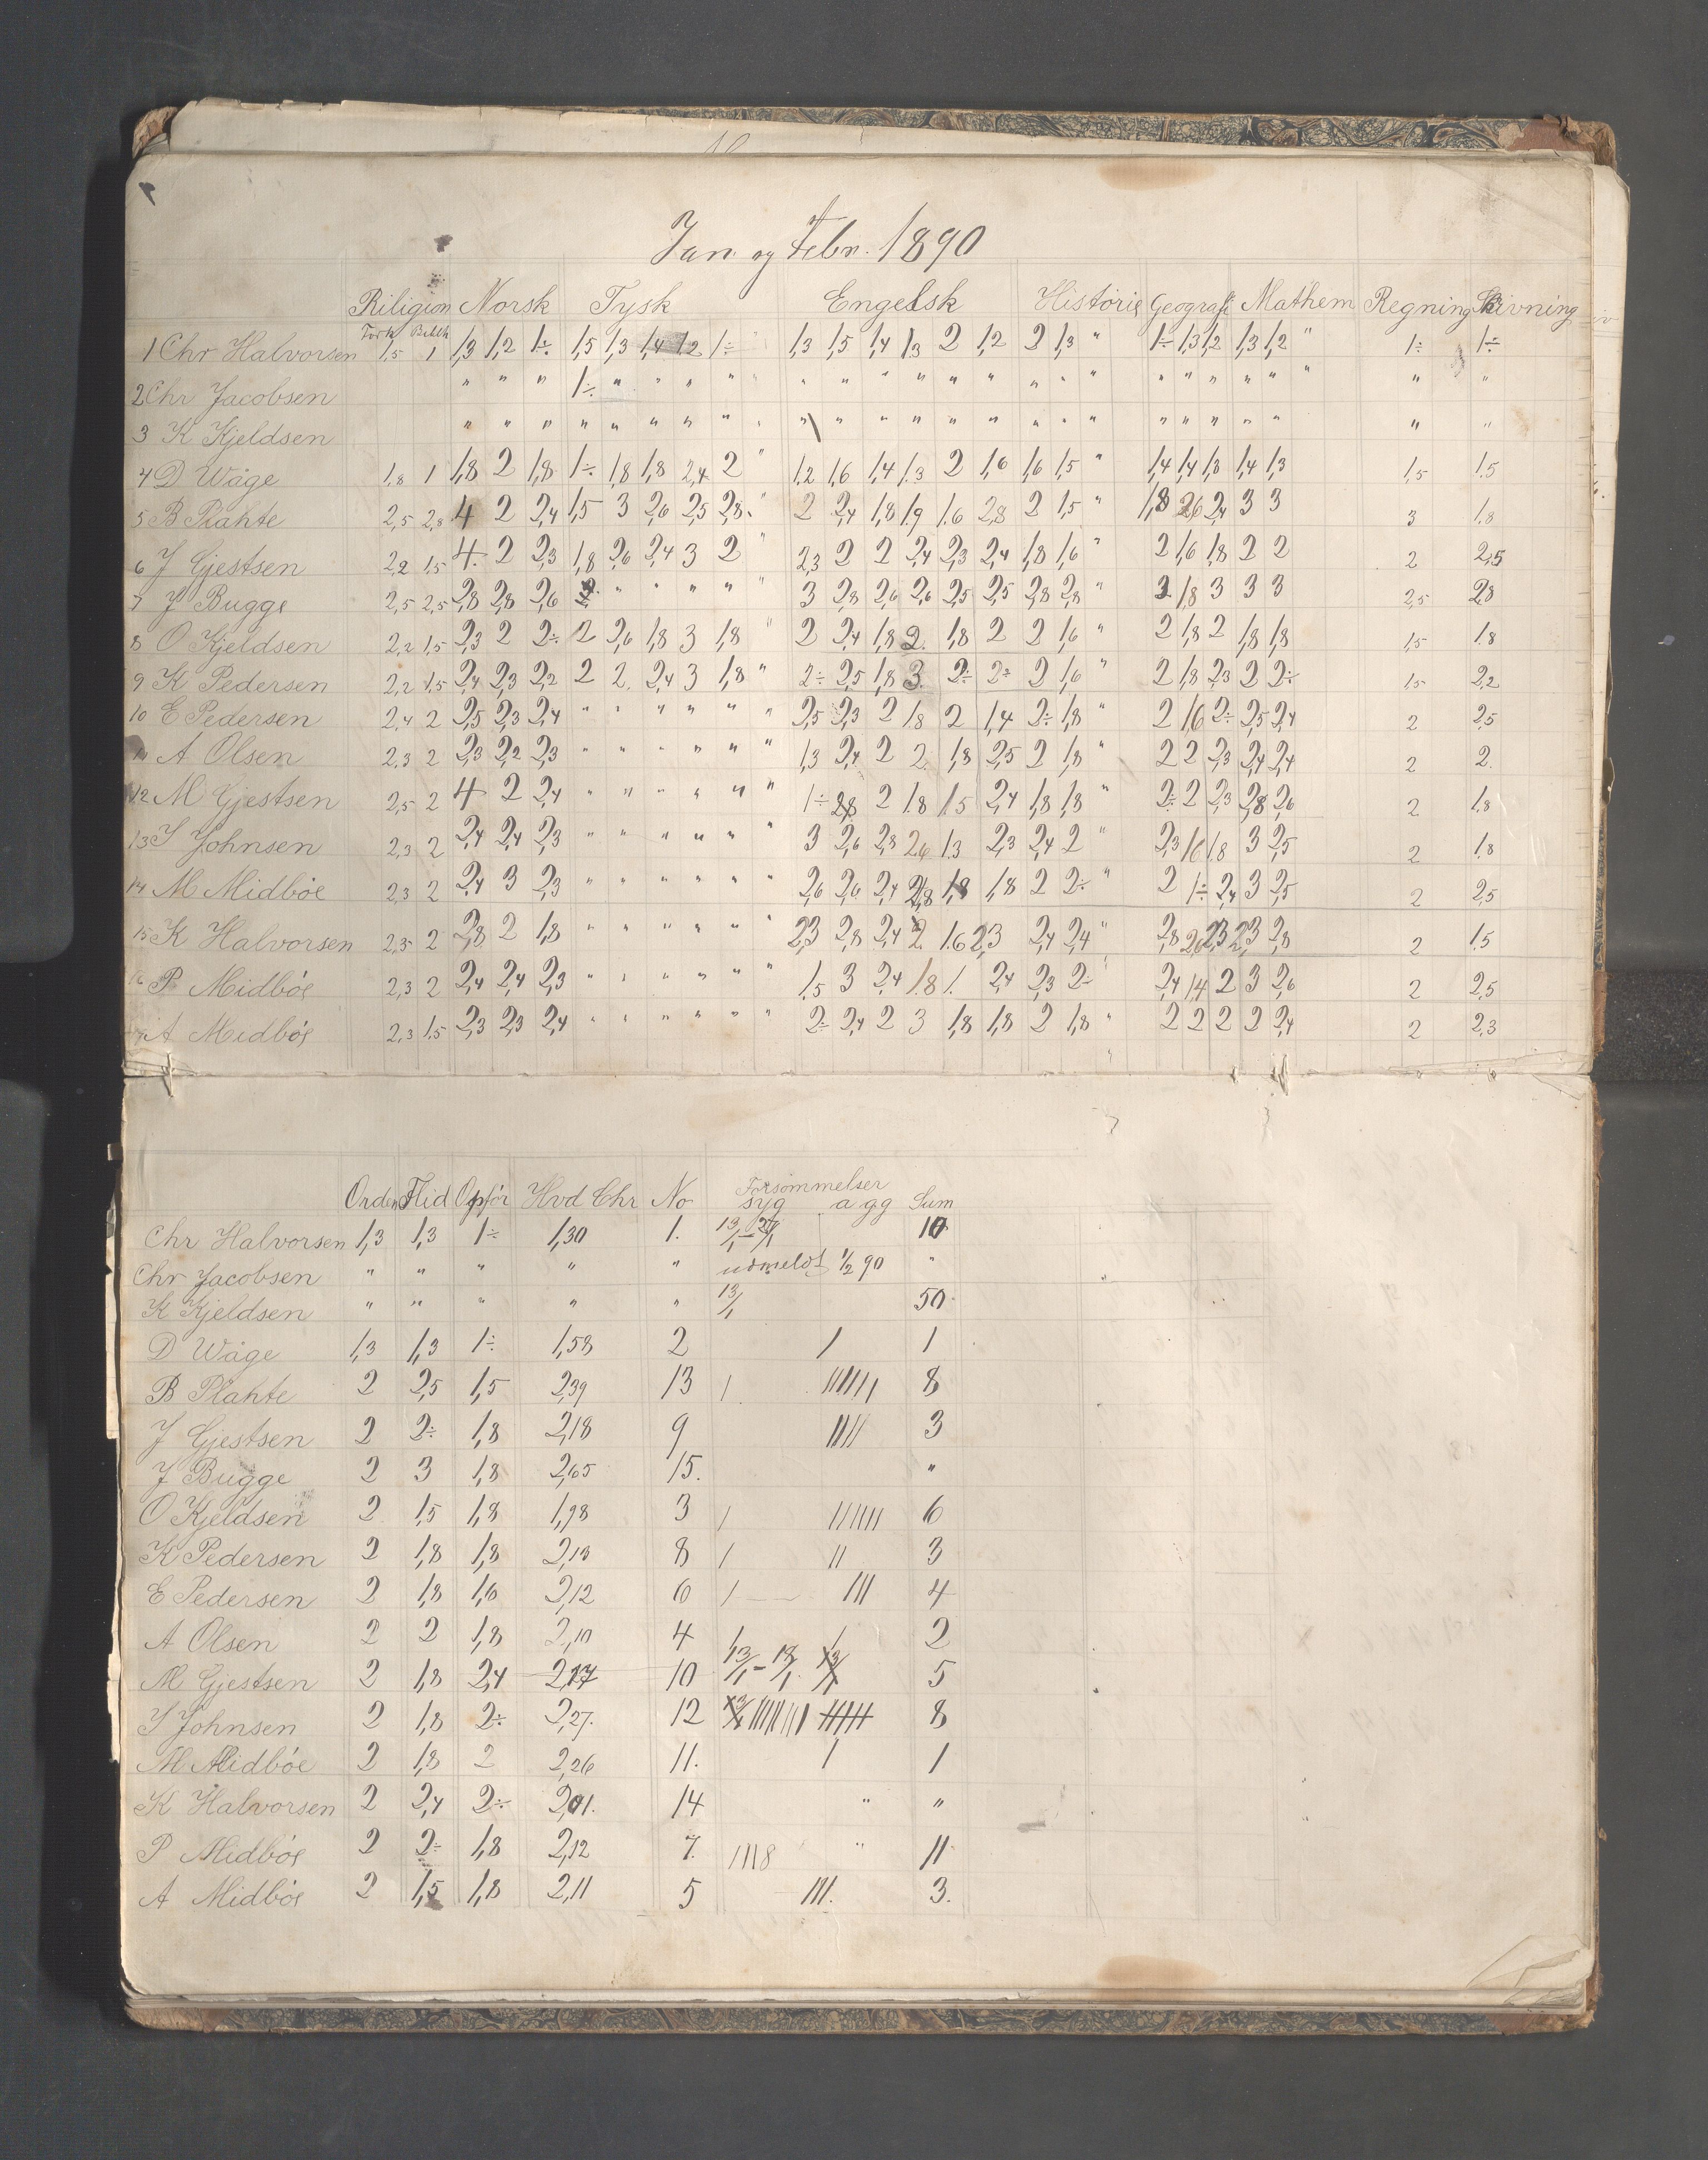 Jan og Febr. 1890
Riligion Norsk Tysk Engelsk Historie Geografi Mathem Regning Skrivning
Fork Bibelh
1 Chr Halvorsen 1,5 1 1,3 1,2 1÷ 1,5 1,3 1,4 1,2 1÷ " 1,3 1,5 1,4 1,3 2 1,2 2 1,3 " 1÷ 1,3 1,2 1,3 1,2 " 1÷ 1÷
2 Chr Jacobsen " " " 1÷ " " " " " " " " " " " " " " " " " " " "
3 K Kjeldsen " " " " " " " " " " " " " " " " " " " " " " " "
4 D Wåge 1,8 1 1,8 2 1,8 1÷ 1,8 1,8 2,4 2 " 1,2 1,6 1,4 1,3 2 1,6 1,6 1,5 " 1,4 1,4 1,3 1,4 1,3 1,5 1,5
5 B Plahte 2,5 2,8 4 2 2,4 1,5 3 2,6 2,5 2,8 " 2 2,4 1,8 1,9 1,6 2,8 2 1,5 " 1,8 2,6 2,4 3 3 3 1,8
6 J Gjestsen 2,2 1,5 4 2 2,3 1,8 2,6 2,4 3 2 " 2,3 2 2 2,4 2,3 2,4 1,8 1,6 " 2 1,6 1,8 2 2 2 2,5
7 J Bugge 2,5 2,5 2,8 2,8 2,6 2 " " " " " 3 2,8 2,6 2,6 2,5 2,5 2,8 2,8 " 3 1,8 3 3 3 2,5 2,8
8 O Kjeldsen 2,2 1,5 2,3 2 2÷ 2 2,6 1,8 3 1,8 " 2 2,4 1,8 2 1,8 2 2 1,6 " 2 1,8 2 1,8 1,8 1,5 1,8
9 K Pedersen 2,2 1,5 2,4 2,3 2,2 2 2 2,4 3 1,8 " 2÷ 2,5 1,8 3 2÷ 2÷ 2 1,6 " 2 1,8 2,3 2 2÷ 1,5 2,2
10 E Pedersen 2,4 2 2,5 2,3 2,4 " " " " " " 2,5 2,3 2 1,8 2 1,4 2÷ 1,8 " 2 1,6 2÷ 2,5 2,4 2 2,5
11 A Olsen 2,3 2 2,3 2,2 2,3 " " " " " " 1,3 2,4 2 2 1,8 2,5 2 1,8 " 2 2 2,3 2,4 2,4 2 2
12 M Gjestsen 2,5 2 4 2 2,4 " " " " " " 1÷ 2,8 2 1,8 1,5 2,4 1,8 1,8 " 2÷ 2 2,3 2,8 2,6 2 1,8
13 J Johnsen 2,3 2 2,4 2,4 2,3 " " " " " " 3 2,6 2,8 2,6 1,3 2,3 2,4 2 " 2,3 1,6 1,8 3 2,5 2 1,8
14 M Midböe 2,3 2 2,4 3 2,3 " " " " " " 2,6 2,6 2,4 2,8 1,8 1,8 2 2÷ " 2 1÷ 2,4 3 2,5 2 2,5
15 K Halvorsen 2,3 2 2,8 2 1,8 " " " " " " 2,3 2,8 2,4 2 1,6 2,3 2,4 2,4 " 2,8 2,6 2,3 2,3 2,8 2 1,5
16 P Midböe 2,3 2 2,4 2,4 2,3 " " " " " " 1,5 3 2,4 1,8 1. 2,4 2,3 2÷ " 2,4 1,4 2 3 2,6 2 2,5
17 A Midböe 2,3 1,5 2,3 2,3 2,4 " " " " " " 2÷ 2,4 2 3 1,8 1,8 2 1,8 " 2 2 2 2 2,4 2 2,3
Forsömmelser
Orden Flid Opför Hvd Chr No syg a gg Sum
Chr Halvorsen 1,3 1,3 1÷ 1,30 1. 13/1 - 27/1 10
Chr Jacobsen " " " " " udmeldt 1/2 90 "
K Kjeldsen " " " " " 13/1 50
D Wåge 1,3 1,3 1÷ 1,58 2 / 1
B Plahte 2 2,5 1,5 2,39 13 / ////// 8
J Gjestsen 2 2÷ 1,8 2,18 9 //// 3
J Bugge 2 3 1,8 2,65 15. "
O Kjeldsen 2 1,5 1,8 1,98 3 / ////// 6
K Pedersen 2 1,8 1,8 2,13 8 / // 3
E Pedersen 2 1,8 1,6 2,12 6 / /// 4
A Olsen 2 2 1,8 2,10 4 / / 2
M Gjestsen 2 1,8 2,4 2,17 10 13/1 - 18/1. 5
J Johnsen 2 1,8 2÷ 2,27. 12 8
M Midböe 2 1,8 2 2,26 11. / 1
K Halvorsen 2 2,4 2÷ 14 " "
P Midböe 2 2÷ 1,8 2,12 7. ///8 " 11
A Midböe 2 1,5 1,8 2,11 5 ///. 3.